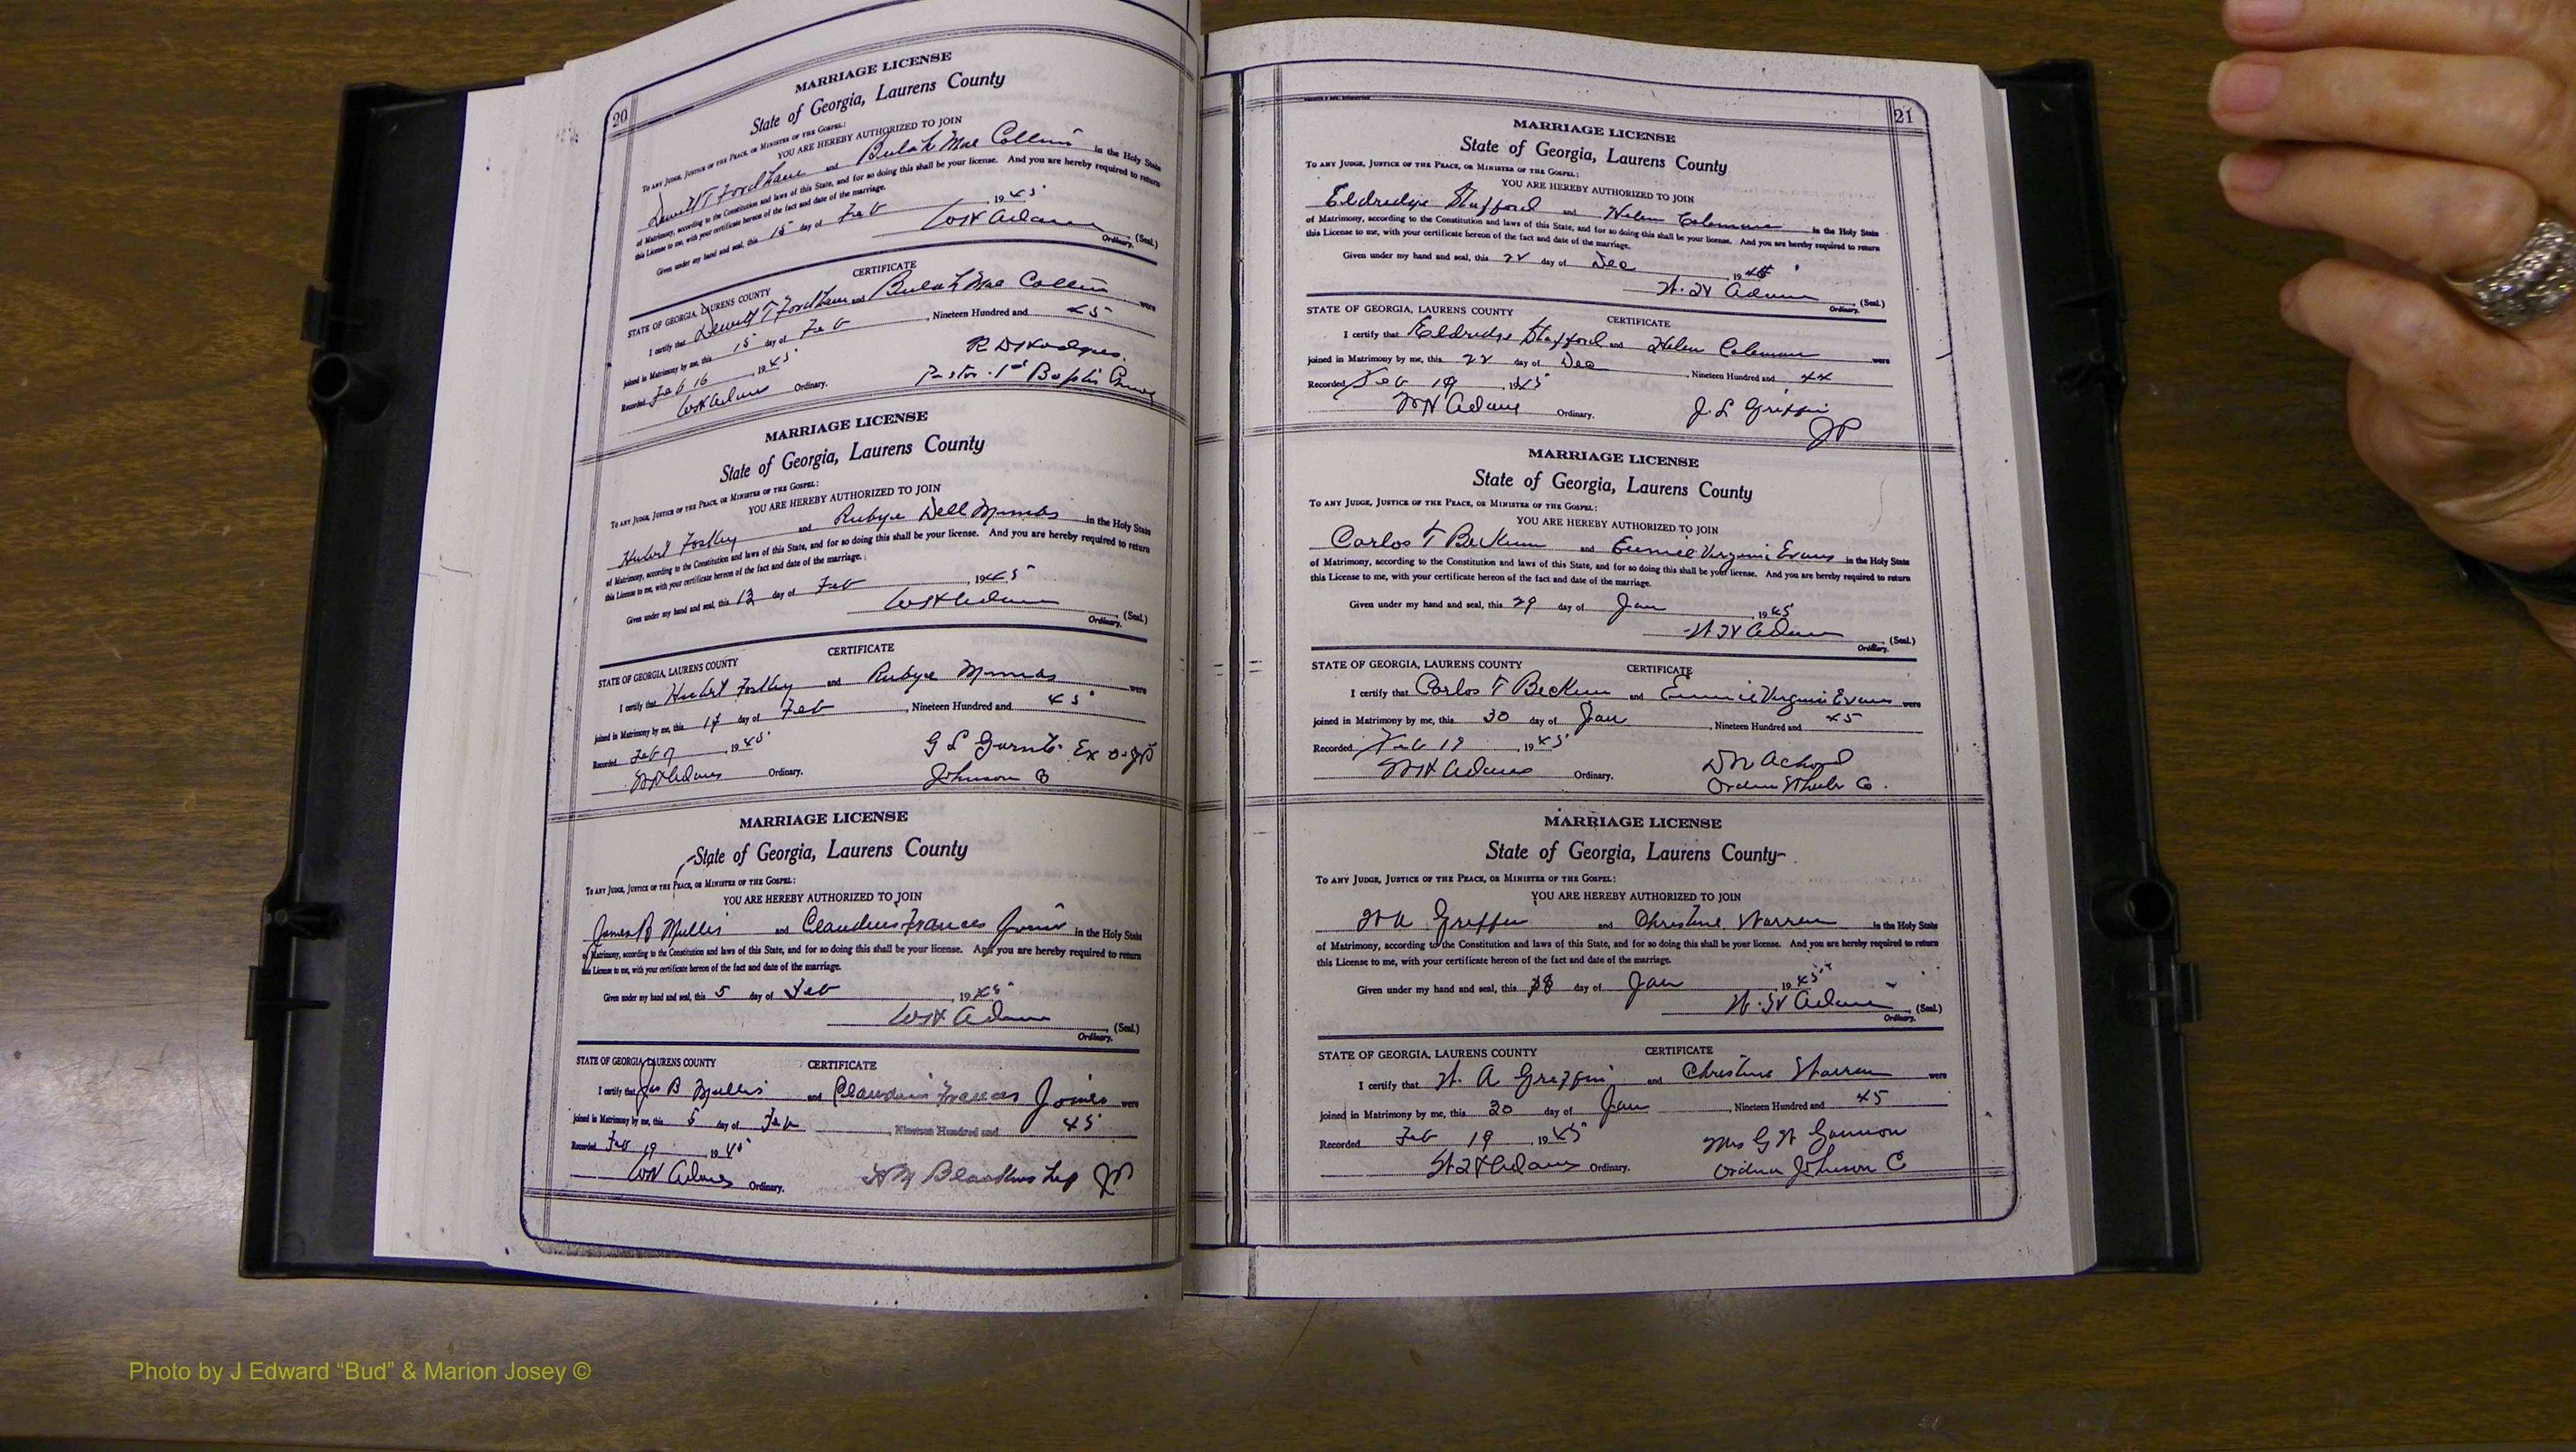 20
MARRIAGE LICENSE
State of Georgia, Laurens County
To any Judge, Justice of the Peace, or Minister of the Gospel:
YOU ARE HEREBY AUTHORIZED TO JOIN
Dewitt T Fordham and Beulah Mae Collins in the Holy State
of Matrimony, according to the Constitution and laws of this State, and for so doing this shall be your license. And you are hereby required to return
this License to me, with your certificate hereon of the fact and date of the marriage.
Given under my hand and seal, this 15 day of Feb 1945
WH Adams (Seal.)
Ordinary.
CERTIFICATE
STATE OF GEORGIA, LAURENS COUNTY
I certify that Dewitt T Fordham and Beulah Mae Collins were
joined in Matrimony by me, this 15 day of Feb, Nineteen Hundred and 45
Recorded Feb 16, 1945
R D Hodges.
WH Adams Ordinary.
Pastor 1st Baptis
MARRIAGE LICENSE
State of Georgia, Laurens County
To any Judge, Justice of the Peace, or Minister of the Gospel:
YOU ARE HEREBY AUTHORIZED TO JOIN
Hubert and Rubye Dell Mimbs in the Holy State
of Matrimony, according to the Constitution and laws of this State, and for so doing this shall be your license. And you are hereby required to return
this License to me, with your certificate hereon of the fact and date of the marriage.
Given under my hand and seal, this 12 day of Feb, 1945
WH Adams (Seal.)
Ordinary.
CERTIFICATE
STATE OF GEORGIA, LAURENS COUNTY
I certify that Hubert and Rubye Mimbs were
joined in Matrimony by me, this 14 day of Feb, Nineteen Hundred and 45
Recorded Feb, 1945
G L Ex O-JP
WH Adams Ordinary.
Johnson Co
MARRIAGE LICENSE
State of Georgia, Laurens County
To any Judge, Justice of the Peace, or Minister of the Gospel:
YOU ARE HEREBY AUTHORIZED TO JOIN
James B Mullis and Frances Joiner in the Holy State
of Matrimony, according to the Constitution and laws of this State, and for so doing this shall be your license. And you are hereby required to return
this License to me, with your certificate hereon of the fact and date of the marriage.
Given under my hand and seal, this 5 day of Feb, 1945
WH Adams (Seal.)
Ordinary.
STATE OF GEORGIA, LAURENS COUNTY CERTIFICATE
I certify that Jas B Mullis and Frances Joiner were
joined in Matrimony by me, this 5 day of Feb, Nineteen Hundred and 45
Recorded Feb 19, 1945
WH Adams Ordinary.
H M Blankinship JP
21
MARRIAGE LICENSE
State of Georgia, Laurens County
To any Judge, Justice of the Peace, or Minister of the Gospel:
YOU ARE HEREBY AUTHORIZED TO JOIN
Eldredge Stafford and Helen Coleman in the Holy State
of Matrimony, according to the Constitution and laws of this State, and for so doing this shall be your license. And you are hereby required to return
this License to me, with your certificate hereon of the fact and date of the marriage.
Given under my hand and seal, this 22 day of Dec, 19
W. H Adams (Seal.)
Ordinary.
STATE OF GEORGIA, LAURENS COUNTY CERTIFICATE
I certify that Eldredge Stafford and Helen Coleman were
joined in Matrimony by me, this 22 day of Dec, Nineteen Hundred and 44
Recorded Feb 19, 1945
WH Adams Ordinary.
J. L Griffin
JP
MARRIAGE LICENSE
State of Georgia, Laurens County
To any Judge, Justice of the Peace, or Minister of the Gospel:
YOU ARE HEREBY AUTHORIZED TO JOIN
Carlos T Beckum and Eunice Virginia Evans in the Holy State
of Matrimony, according to the Constitution and laws of this State, and for so doing this shall be your license. And you are hereby required to return
this License to me, with your certificate hereon of the fact and date of the marriage.
Given under my hand and seal, this 29 day of Jan, 1945
W H Adams (Seal.)
Ordinary.
STATE OF GEORGIA, LAURENS COUNTY CERTIFICATE
I certify that Carlos T Beckum and Eunice Virginia Evans were
joined in Matrimony by me, this 30 day of Jan, Nineteen Hundred and 45
Recorded Feb 19, 1945
WH Adams Ordinary.
D N Achord
Ordin Wheeler Co.
MARRIAGE LICENSE
State of Georgia, Laurens County
To any Judge, Justice of the Peace, or Minister of the Gospel:
YOU ARE HEREBY AUTHORIZED TO JOIN
W A Griffin and Christine Warren in the Holy State
of Matrimony, according to the Constitution and laws of this State, and for so doing this shall be your license. And you are hereby required to return
this License to me, with your certificate hereon of the fact and date of the marriage.
Given under my hand and seal, this day of Jan 1945
W. H Adams (Seal.)
Ordinary.
STATE OF GEORGIA, LAURENS COUNTY CERTIFICATE
I certify that W. A Griffin and Christine Warren were
joined in Matrimony by me, this 20 day of Jan, Nineteen Hundred and 45
Recorded Feb 19, 1945
Mrs G W
W H Adams Ordinary.
Johnson C
Photo by J Edward “Bud” & Marion Josey ©